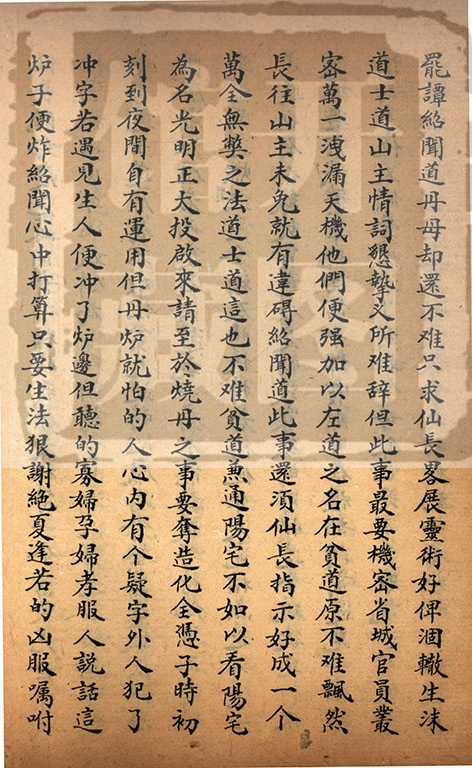 罷譚紹聞道丹母却還不难只求仙長畧展靈術好俾涸轍生沫
道士道山主情詞懇摯义所难辞但此事最要機密省城官員叢
密萬一洩漏天機他們便强加以左道之名在貧道原不难飄然
長往山主未免就有違碍紹聞道此事還須仙長指示好成一个
萬全無獘之法道士道這也不难貧道兼通陽宅不如以看陽宅
為名光明正大投啟來請至於燒丹之事要奪造化全憑子時初
刻到夜間自有運用但丹炉就怕的人心內有个疑字外人犯了
冲字若遇見生人便冲了炉邊但聽的寡婦孕婦孝服人説話這
炉子便炸紹聞心中打算只要生法狠謝絶夏逢若的凶服嘱咐